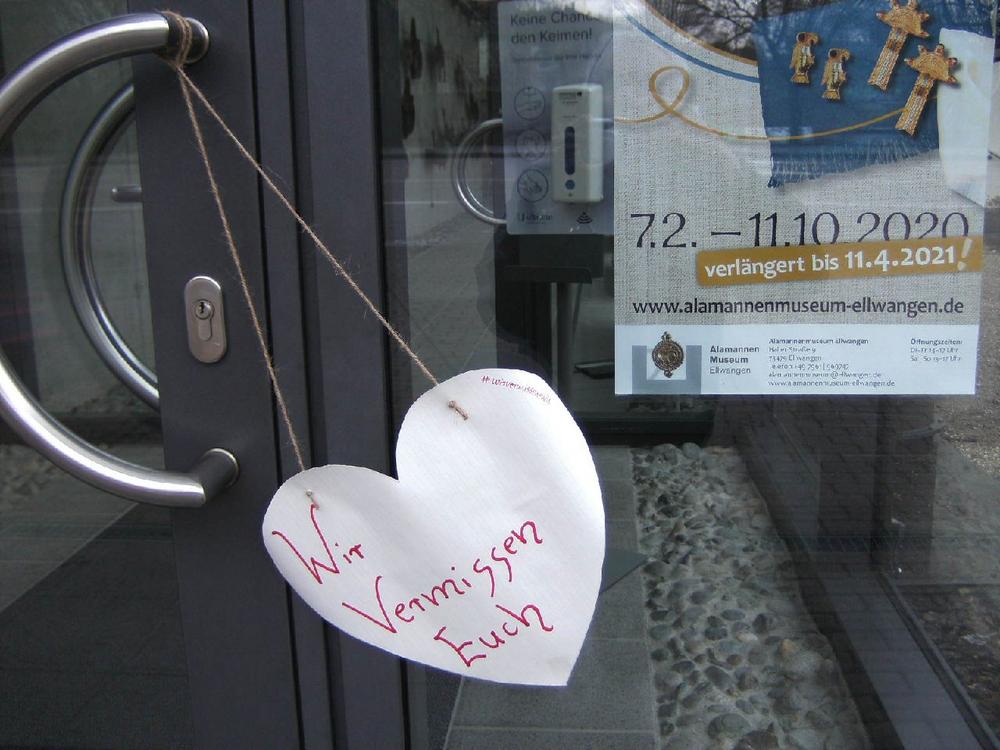 Keine Chance
den Keimen!
7.2. – 11.10.2020
verlängert bis 11.4.2021!
www.alamannenmuseum-ellwangen.de
Alamannen
Museum
Ellwangen
Alamannenmuseum Ellwangen
Haller Straße 9
73479 Ellwangen
alamannenmuseum@ellwangen.de
www.alamannenmuseum-ellwangen.de
Öffnungszeiten:
#wirvermisseneuch
Wir
Vermissen
Euch